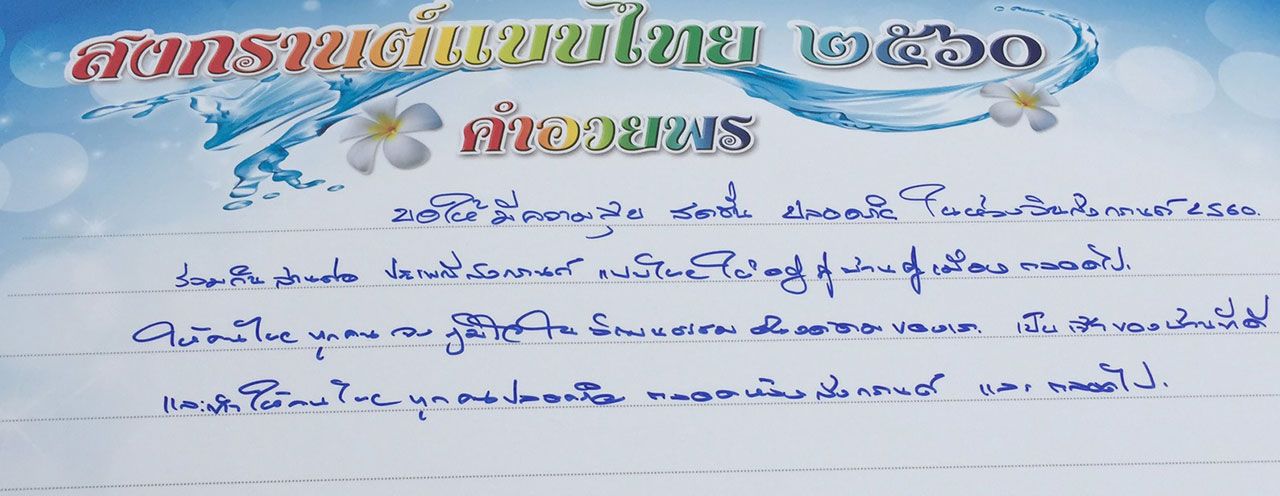 สงกรานต์แบบไทย ๒๕๖๐
คำอวยพร
ขอให้มีความสุข สดชื่น ปลอดภัย ในช่วงวันสงกรานต์ 2560.
ร่วมกัน สานต่อ ประเพณีสงกรานต์ แบบไทยให้อยู่คู่บ้านคู่เมือง ตลอดไป.
ให้คนไทยทุกคน จงภูมิใจใน วัฒนธรรม อันงดงาม ของเรา. เป็นเจ้าของบ้านที่ดี
และทำให้คนไทยทุกคนปลอดภัย ตลอดห้วงสงกรานต์ และ ตลอดไป.